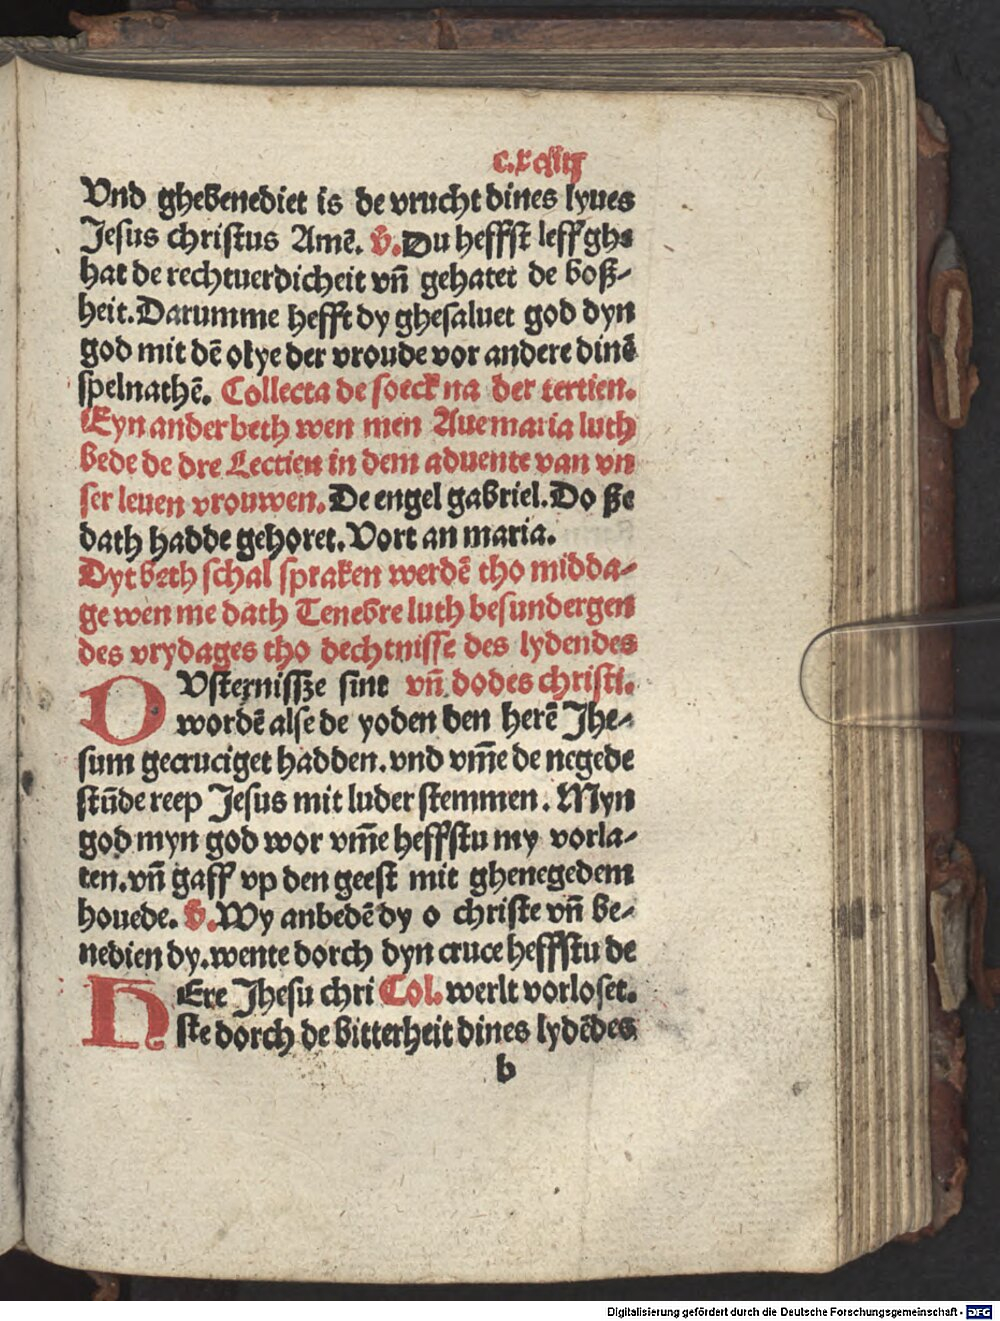 Vnd ghebenediet is de vrucht dines lyues
Jesus christus Amē. v̄. Du heffst leffghe
hat de rechtuerdicheit vn̄ gehatet de boß-
heit. Darumme hefft dy ghesaluet god dyn
god mit dē olye der vroude vor andere dinē
spelnathē. Collecta de soeck na der tertien.
Eyn ander beth wen men Aue maria luth
bede de dre Lectien in dem aduente van vn
ser leuen vrouwen. De engel gabriel. Do ße
dath hadde gehoret. Vort an maria.
Dyt beth schal spraken werdē tho midda-
ge wen me dath Tenebre luth besundergen
des vrydages tho dechtnisse des lydendes
DVsternissze sint vn̄ dodes christi.
wordē alse de yoden den herē Jhe-
sum gecruciget hadden. vnd vm̄e de negede
stūde reep Jesus mit luder stemmen. Myn
god myn god wor vm̄e heffstu my vorla-
ten. vn̄ gaff vp den geest mit ghenegedem
houede. v̄. Wy anbedē dy o christe vn̄ be-
nedien dy. wente dorch dyn cruce heffstu de
HEre Jhesu chri Col. werlt vorloset.
ste dorch de bitterheit dines lydēdes
b
Digitalisierung gefördert durch die Deutsche Forschungsgemeinschaft - DFG